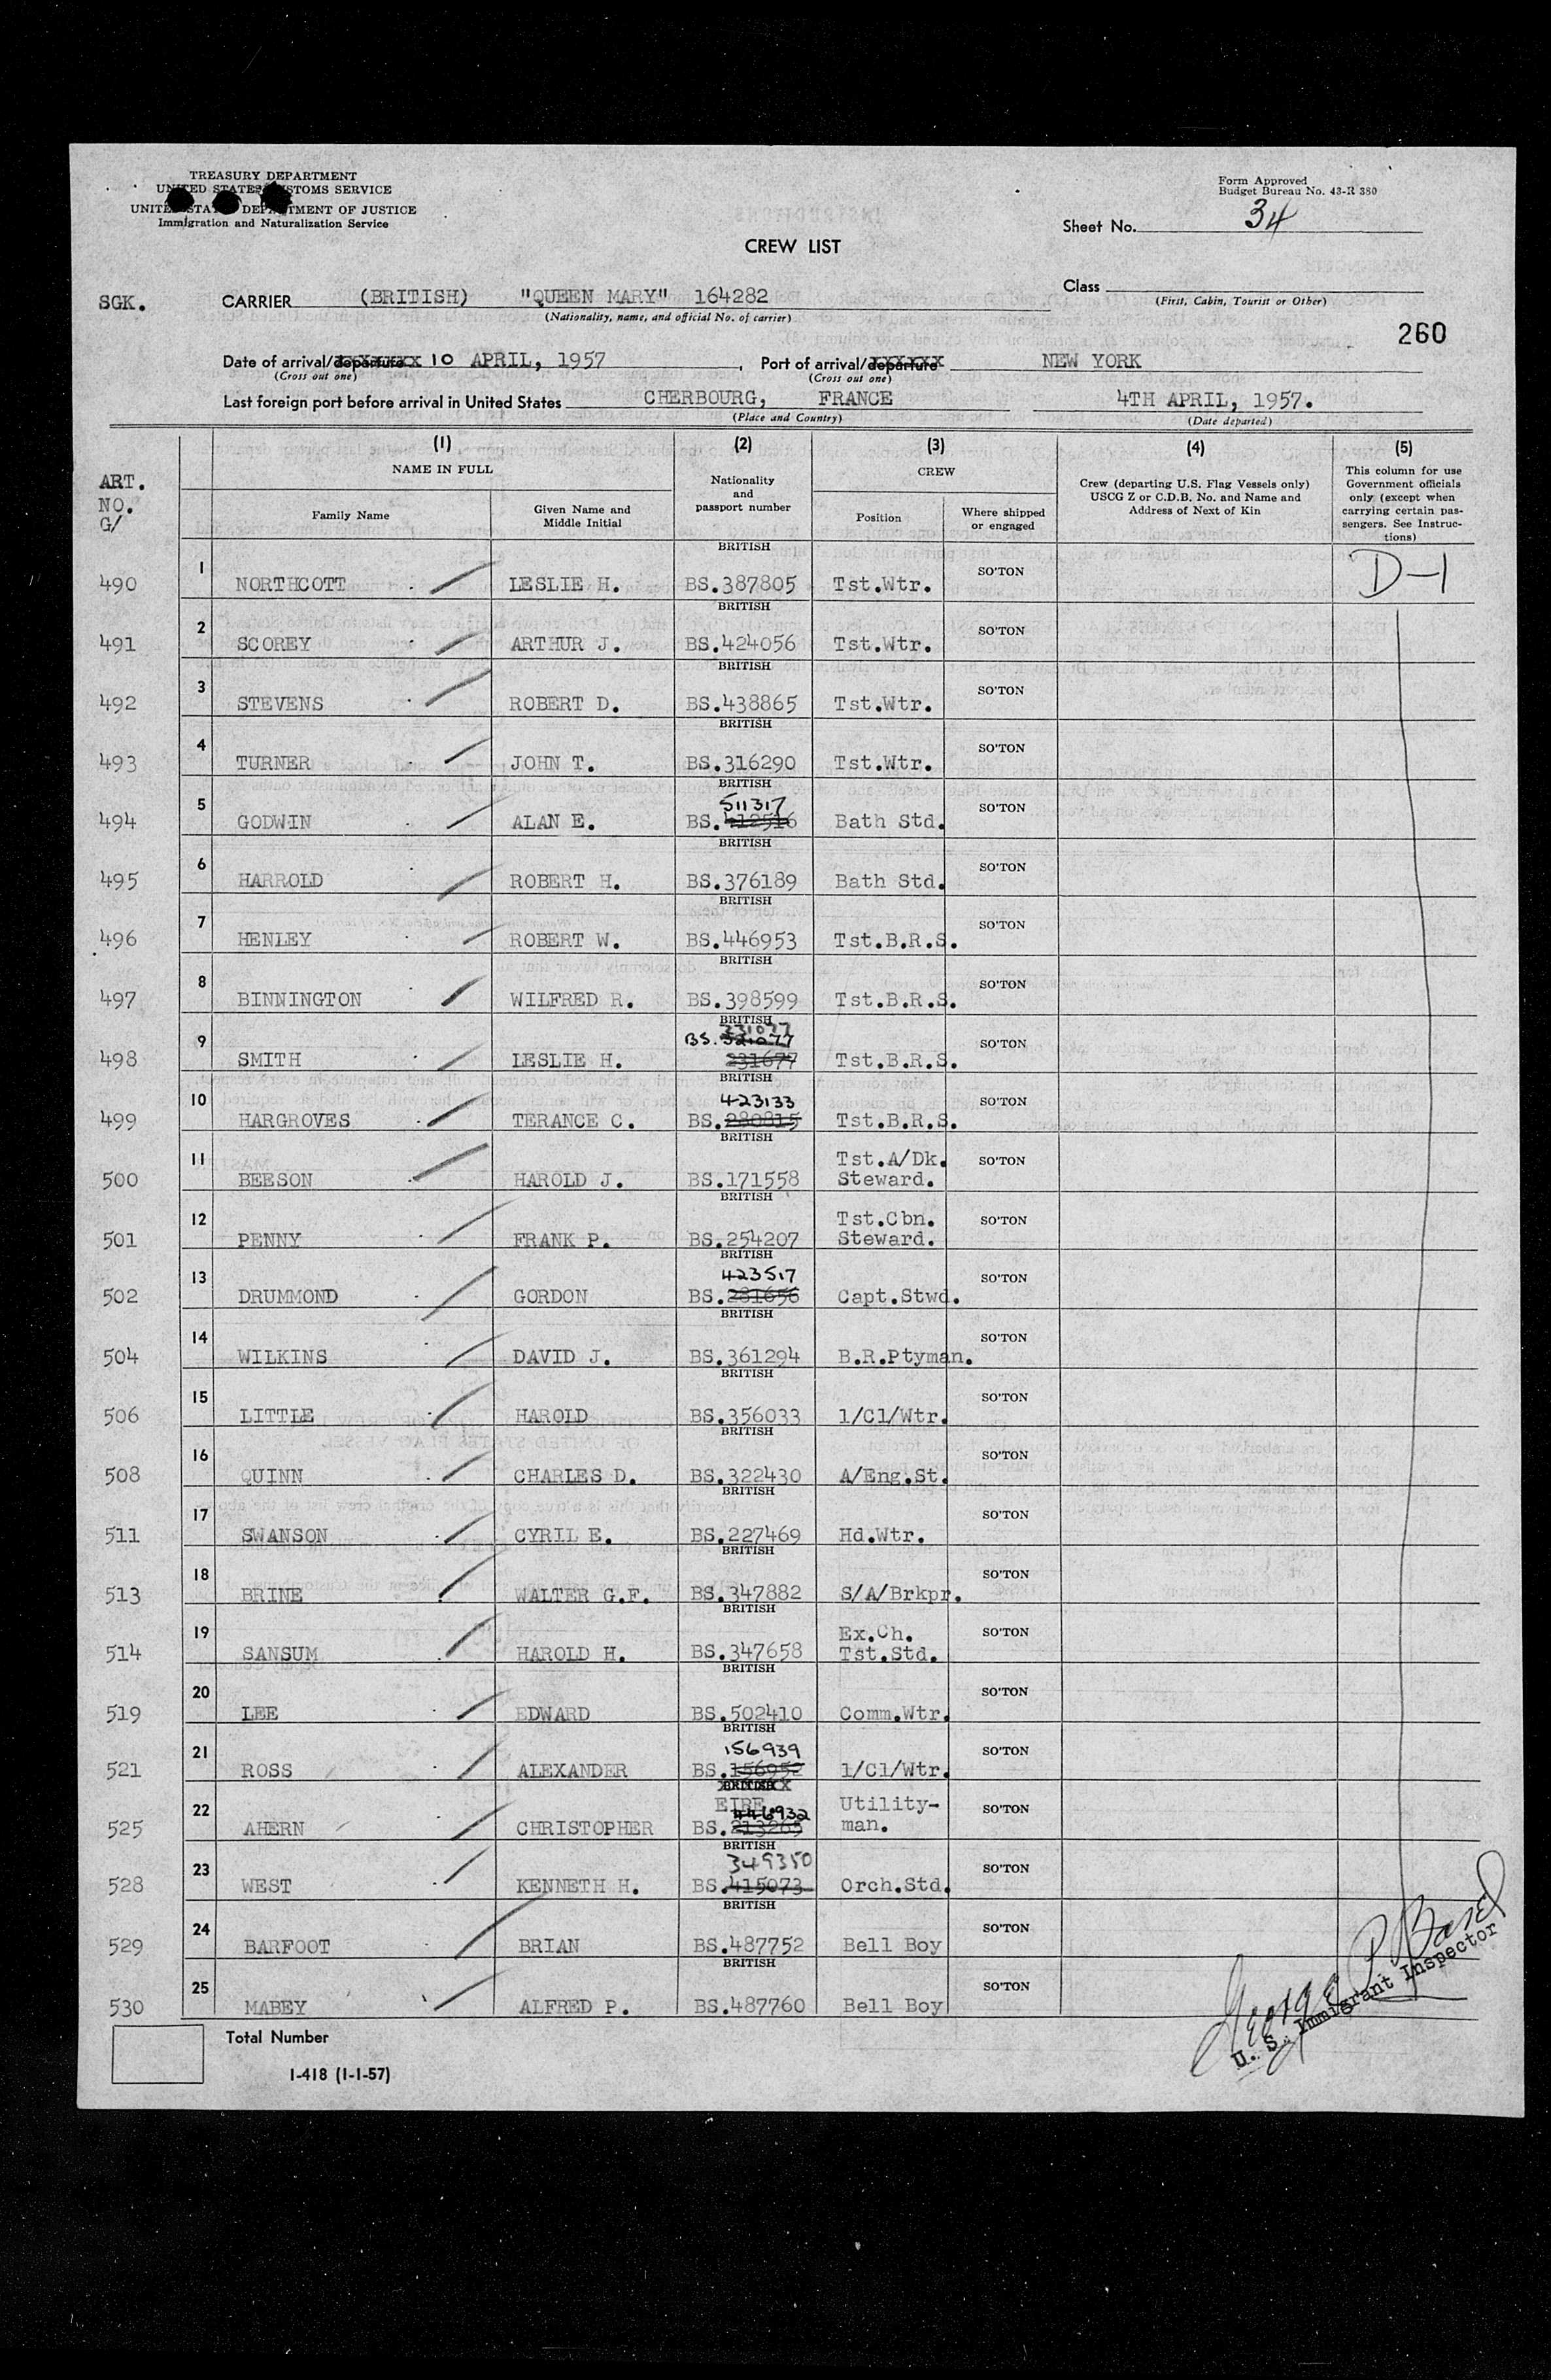 TREASURY DEPARTMENT
UNITED STATES CUSTOMS SERVICE
UNITED STATES DEPARTMENT OF JUSTICE
Immigration and Naturalization Service
Form Approved
Budget Bureau No. 43-R 380
Sheet No. 34
CREW LIST
SGK.
CARRIER (BRITISH) "QUEEN MARY" 164282
(Nationality, name, and official No. of carrier)
Class
(First, Cabin, Tourist or Other)
260
Date of arrival/departure 10 APRIL, 1957, Port of arrival/departure NEW YORK
(Cross out one) (Cross out one)
Last foreign port before arrival in United States CHERBOURG, FRANCE 4TH APRIL, 1957.
(Place and Country) (Date departed)
ART. NO. G/
(1) NAME IN FULL
Family Name
Given Name and Middle Initial
(2) Nationality and passport number
(3) CREW
Position
Where shipped or engaged
(4) Crew (departing U.S. Flag Vessels only) USCG Z or C.D.B. No. and Name and Address of Next of Kin
(5) This column for use Government officials only (except when carrying certain passengers. See Instructions)
490 1 NORTHCOTT LESLIE H. BRITISH BS.387805 Tst.Wtr. SO'TON D-1
491 2 SCOREY ARTHUR J. BRITISH BS.424056 Tst.Wtr. SO'TON
492 3 STEVENS ROBERT D. BRITISH BS.438865 Tst.Wtr. SO'TON
493 4 TURNER JOHN T. BRITISH BS.316290 Tst.Wtr. SO'TON
494 5 GODWIN ALAN E. BRITISH 511317 BS.412516 Bath Std. SO'TON
495 6 HARROLD ROBERT H. BRITISH BS.376189 Bath Std. SO'TON
496 7 HENLEY ROBERT W. BRITISH BS.446953 Tst.B.R.S. SO'TON
497 8 BINNINGTON WILFRED R. BRITISH BS.398599 Tst.B.R.S. SO'TON
498 9 SMITH LESLIE H. BRITISH 331077 BS. 231677 Tst.B.R.S. SO'TON
499 10 HARGROVES TERANCE C. BRITISH 423133 BS.280815 Tst.B.R.S. SO'TON
500 11 BEESON HAROLD J. BRITISH BS.171558 Tst.A/Dk. Steward. SO'TON
501 12 PENNY FRANK P. BRITISH BS.254207 Tst.Cbn. Steward. SO'TON
502 13 DRUMMOND GORDON BRITISH 423517 BS.281656 Capt.Stwd. SO'TON
504 14 WILKINS DAVID J. BRITISH BS.361294 B.R.Ptyman. SO'TON
506 15 LITTLE HAROLD BRITISH BS.356033 1/Cl/Wtr. SO'TON
508 16 QUINN CHARLES D. BRITISH BS.322430 A/Eng.St. SO'TON
511 17 SWANSON CYRIL E. BRITISH BS.227469 Hd.Wtr. SO'TON
513 18 BRINE WALTER G.F. BRITISH BS.347882 S/A/Brkpr. SO'TON
514 19 SANSUM HAROLD H. BRITISH BS.347658 Ex.Ch. Tst.Std. SO'TON
519 20 LEE EDWARD BRITISH BS.502410 Comm.Wtr. SO'TON
521 21 ROSS ALEXANDER BRITISH 156939 BS.156952 1/Cl/Wtr. SO'TON
525 22 AHERN CHRISTOPHER BRITISH EIRE 446932 BS.213265 Utility-man. SO'TON
528 23 WEST KENNETH H. BRITISH 349350 BS.415073 Orch.Std. SO'TON
529 24 BARFOOT BRIAN BRITISH BS.487752 Bell Boy SO'TON
530 25 MABEY ALFRED P. BRITISH BS.487760 Bell Boy SO'TON
George P. Basel
U. S. Immigrant Inspector
Total Number
I-418 (1-1-57)